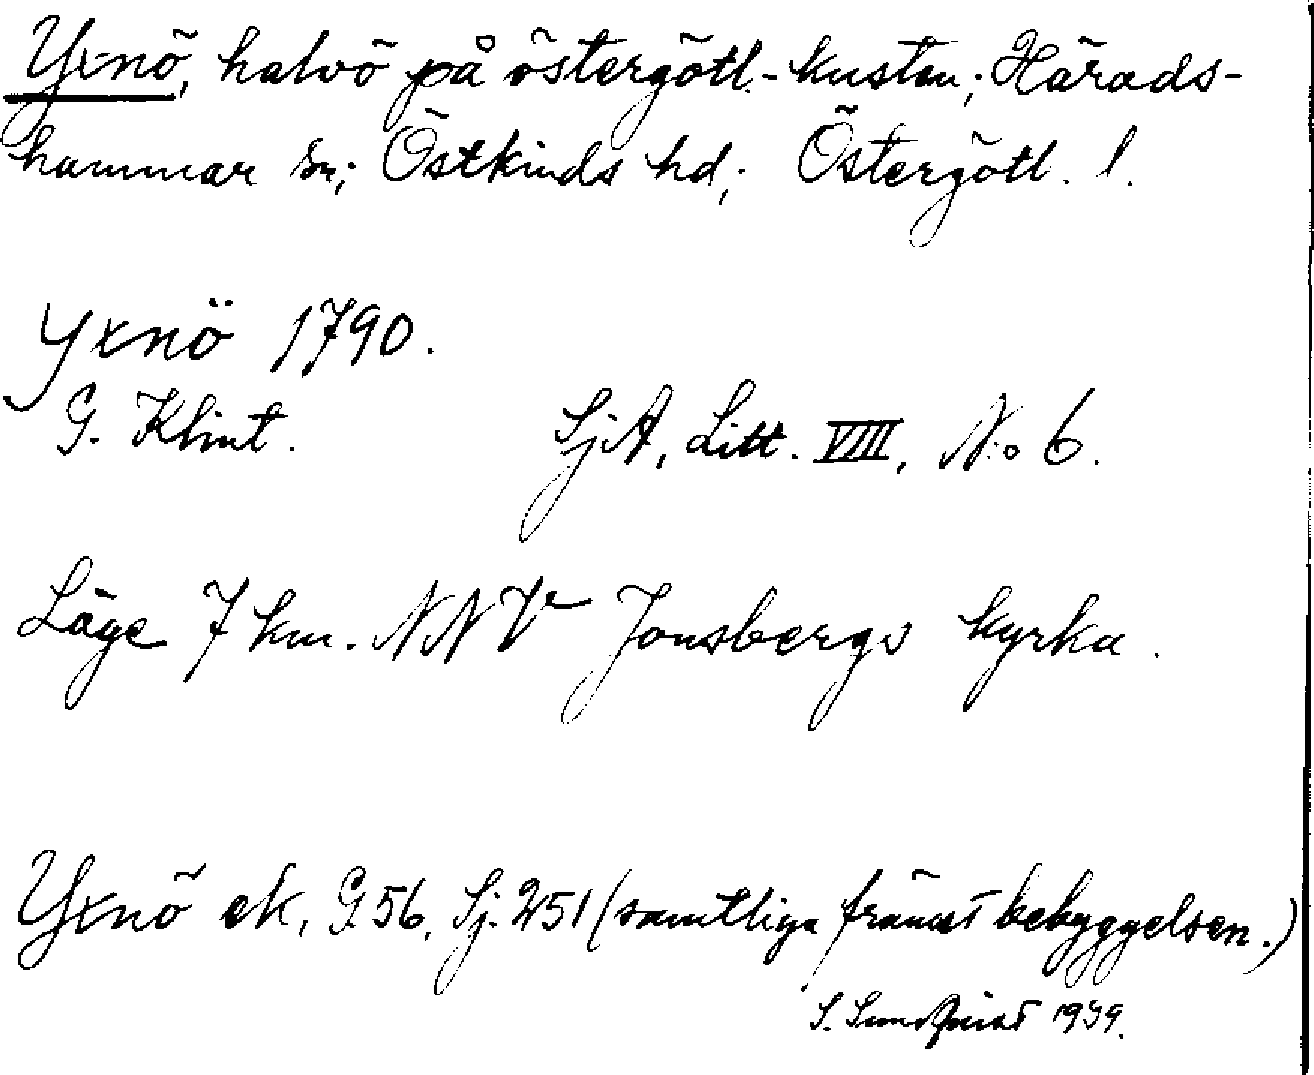 Yxnö, halvö på östergötl.-kusten; Härads-
hammar sn; Östkinds hd; Östergötl. l.
Yxnö 1790.
G. Klint. SjA, Litt. VIII, N:o 6.
Läge 7 km. NNV Jonsbergs kyrka.
Yxnö ek, G.56, Sj. 251 (samtliga främst bebyggelsen.)
S. Sundquist 1939.